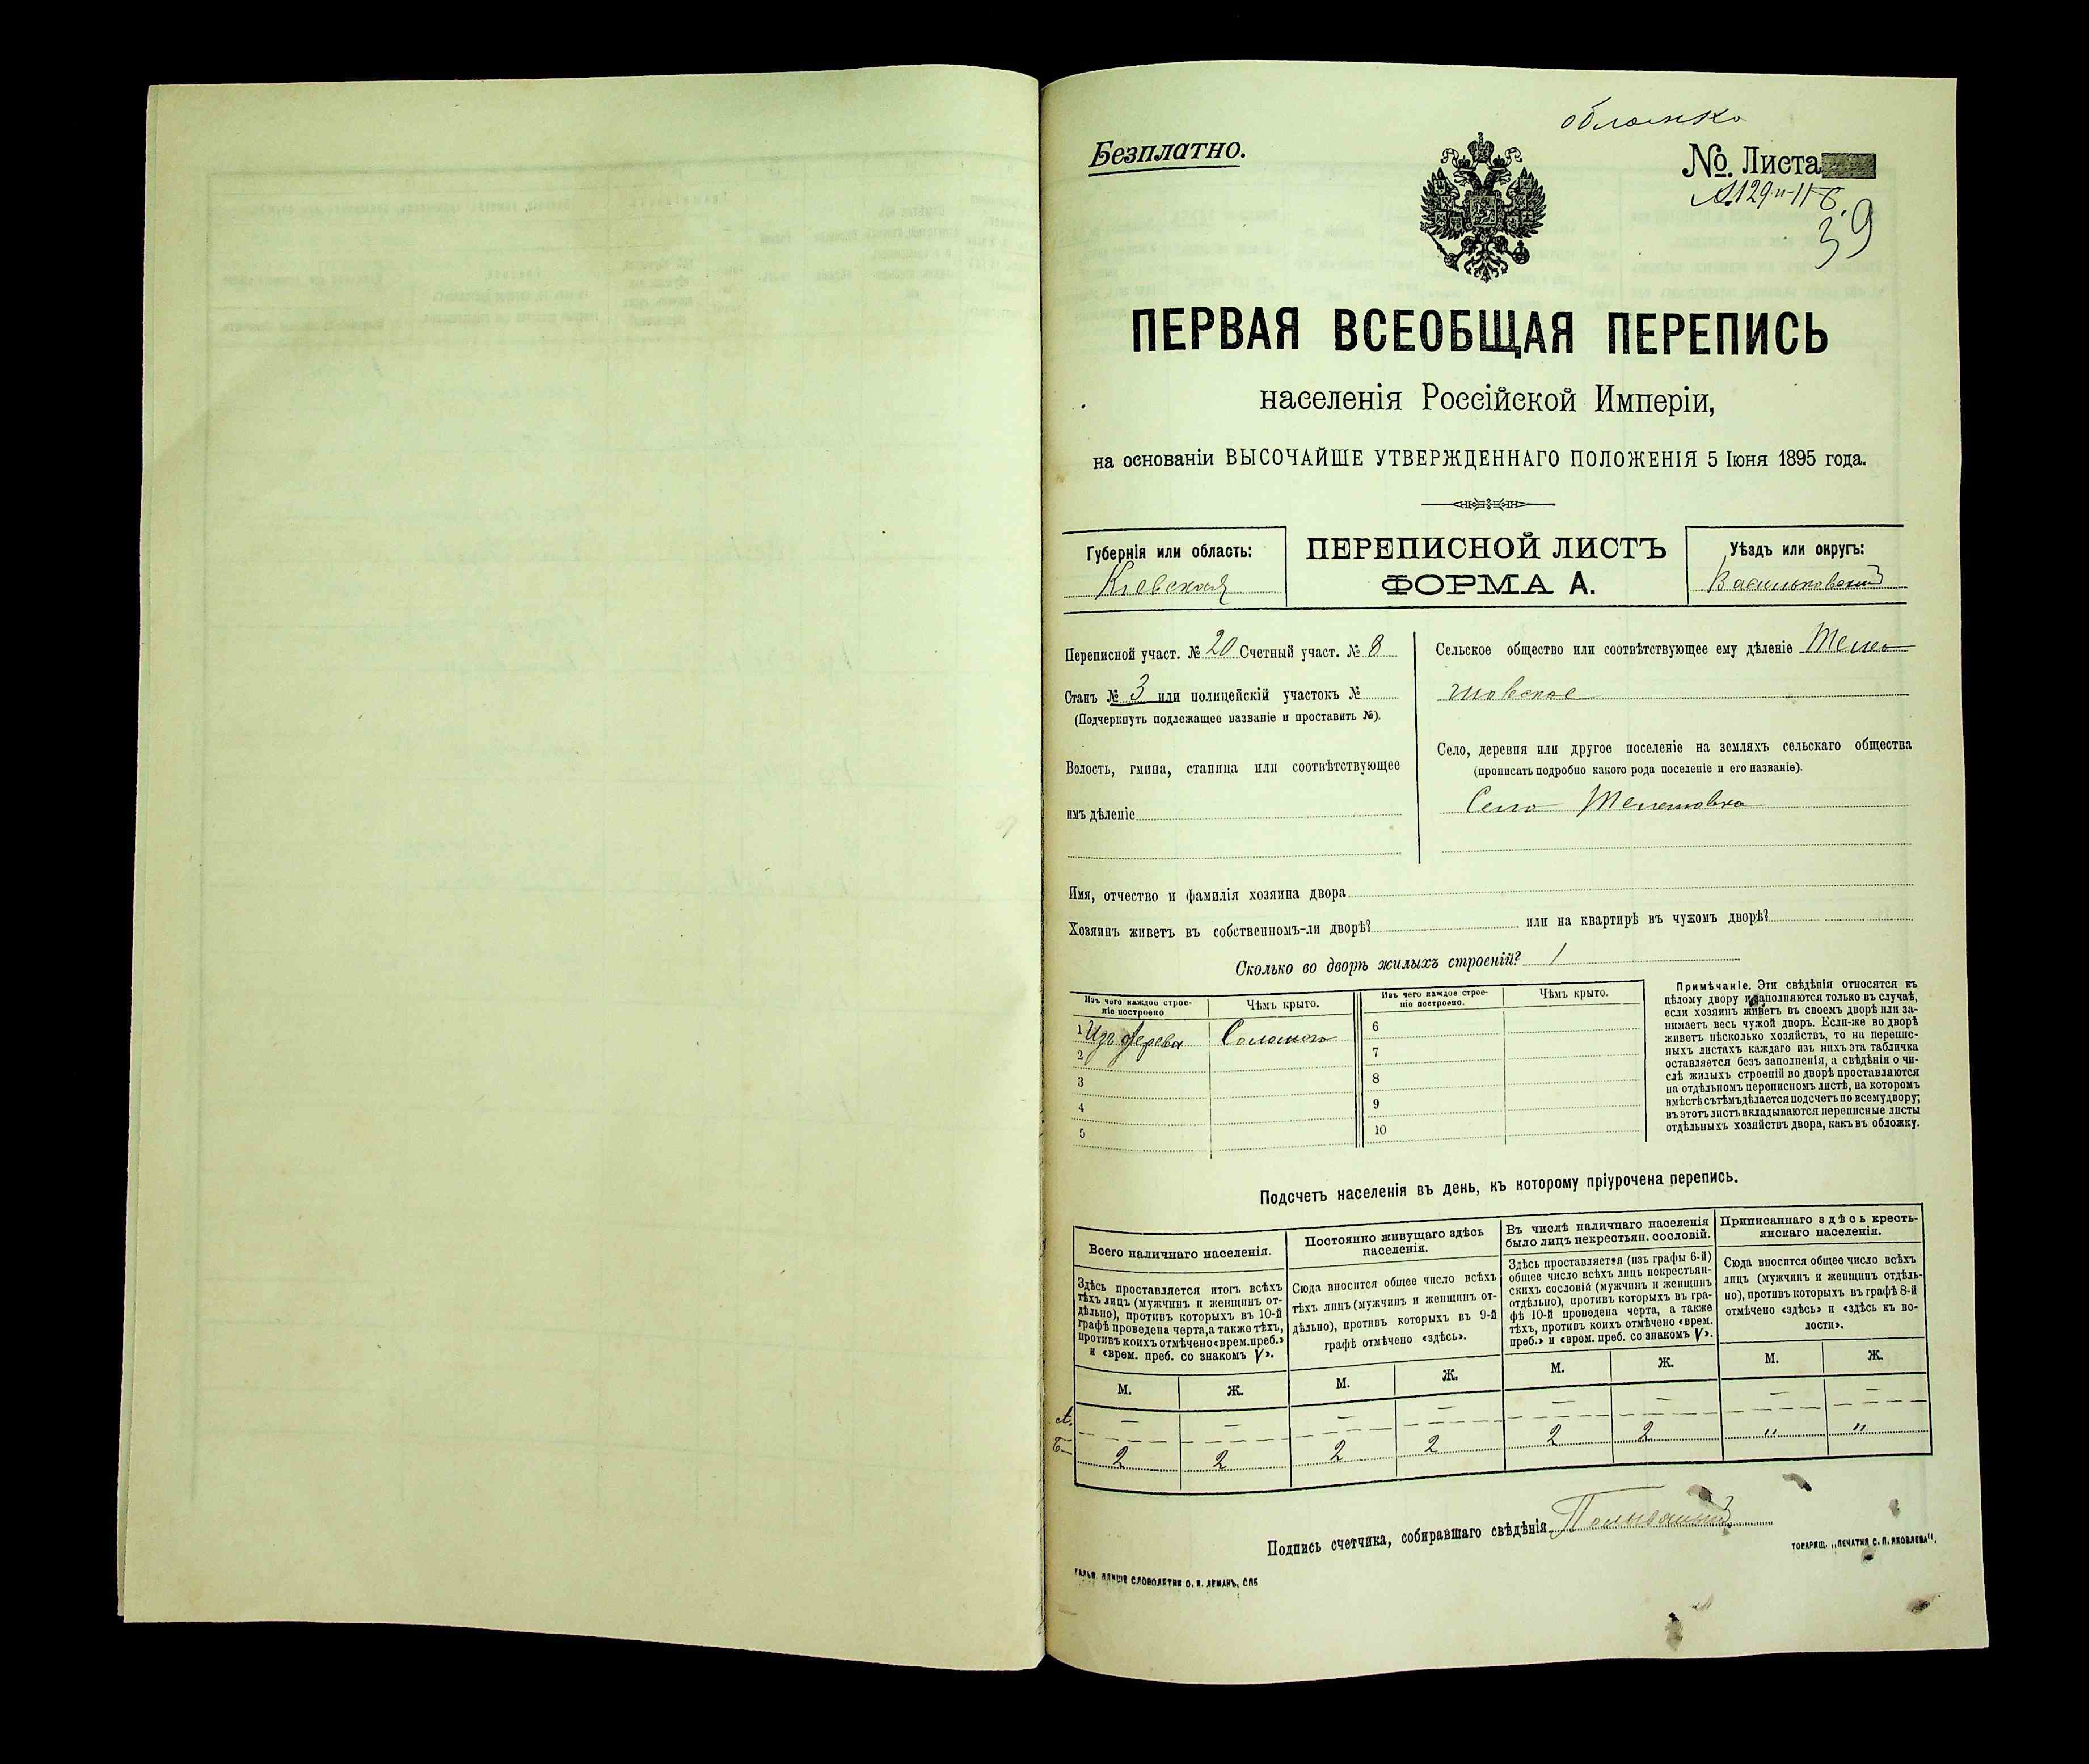 Безплатно.
№. Листа
39
ПЕРВАЯ ВСЕОБЩАЯ ПЕРЕПИСЬ
населенія Россійской Имперіи,
на основаніи ВЫСОЧАЙШЕ УТВЕРЖДЕННАГО ПОЛОЖЕНІЯ 5 Іюня 1895 года.
Губернія или область:
Кіевская
ПЕРЕПИСНОЙ ЛИСТЪ
ФОРМА А.
Уѣздъ или округъ:
Васильковскій
Переписной участ. № 20 Счетный участ. № 8
Станъ № 3 или полицейскій участокъ №
(Подчеркнуть подлежащее названіе и проставить №).
Волость, гмина, станица или соотвѣтствующее
имъ дѣленіе
Сельское общество или соотвѣтствующее ему дѣленіе Теле
шовское
Село, деревня или другое поселеніе на земляхъ сельскаго общества
(прописать подробно какого рода поселеніе и его названіе).
Село Телешовка
Имя, отчество и фамилія хозяина двора
Хозяинъ живетъ въ собственномъ-ли дворѣ? или на квартирѣ въ чужомъ дворѣ?
Сколько во дворѣ жилыхъ строеній? 1
Изъ чего каждое строе-
ніе построено
Чѣмъ крыто.
1 Изъ дерева Соломою
2
3
4
5
Изъ чего каждое строе-
ніе построено.
Чѣмъ крыто.
6
7
8
9
10
Примѣчаніе. Эти свѣдѣнія относятся къ
цѣлому двору и заполняются только въ случаѣ,
если хозяинъ живетъ въ своемъ дворѣ или за-
нимаетъ весь чужой дворъ. Если-же во дворѣ
живетъ нѣсколько хозяйствъ, то на перепис-
ныхъ листахъ каждаго изъ нихъ эта табличка
оставляется безъ заполненія, а свѣдѣнія о чи-
слѣ жилыхъ строеній во дворѣ проставляются
на отдѣльномъ переписномъ листѣ, на которомъ
вмѣстѣ съ тѣмъ дѣлается подсчетъ по всему двору;
въ этотъ листъ вкладываются переписные листы
отдѣльныхъ хозяйствъ двора, какъ въ обложку.
Подсчетъ населенія въ день, къ которому пріурочена перепись.
Всего наличнаго населенія.
Здѣсь проставляется итогъ всѣхъ
тѣхъ лицъ (мужчинъ и женщинъ от-
дѣльно), противъ которыхъ въ 10-й
графѣ проведена черта, а также тѣхъ,
противъ коихъ отмѣчено «врем. преб.»
и «врем. преб. со знакомъ V».
М. Ж.
Постоянно живущаго здѣсь
населенія.
Сюда вносится общее число всѣхъ
тѣхъ лицъ (мужчинъ и женщинъ от-
дѣльно), противъ которыхъ въ 9-й
графѣ отмѣчено «здѣсь».
М. Ж.
Въ числѣ наличнаго населенія
было лицъ некрестьян. сословій.
Здѣсь проставляется (изъ графы 6-й)
общее число всѣхъ лицъ некрестьян-
скихъ сословій (мужчинъ и женщинъ
отдѣльно), противъ которыхъ въ гра-
фѣ 10-й проведена черта, а также
тѣхъ, противъ коихъ отмѣчено «врем.
преб.» и «врем. преб. со знакомъ V».
М. Ж.
Приписаннаго здѣсь кресть-
янскаго населенія.
Сюда вносится общее число всѣхъ
лицъ (мужчинъ и женщинъ отдѣль-
но), противъ которыхъ въ графѣ 8-й
отмѣчено «здѣсь» и «здѣсь къ во-
лости».
М. Ж.
А. — — — — — — — —
Б. 2 2 2 2 2 2 " "
Подпись счетчика, собиравшаго свѣдѣнія
СЛОВОЛИТНЯ О. И. ЛЕМАНЪ, СПБ
ТОВАРИЩ. „ПЕЧАТНЯ С. П. ЯКОВЛЕВА".